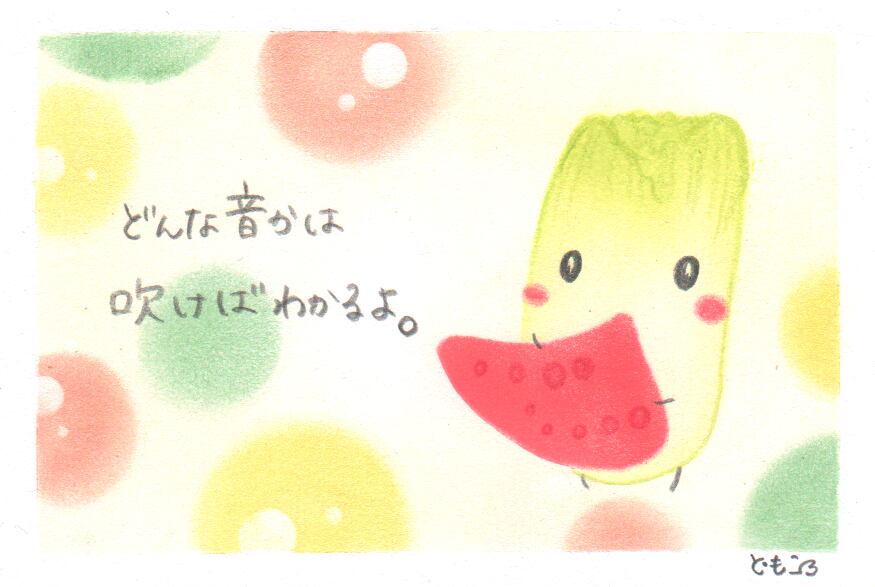 どんな音かは
吹けばわかるよ。
ともころ